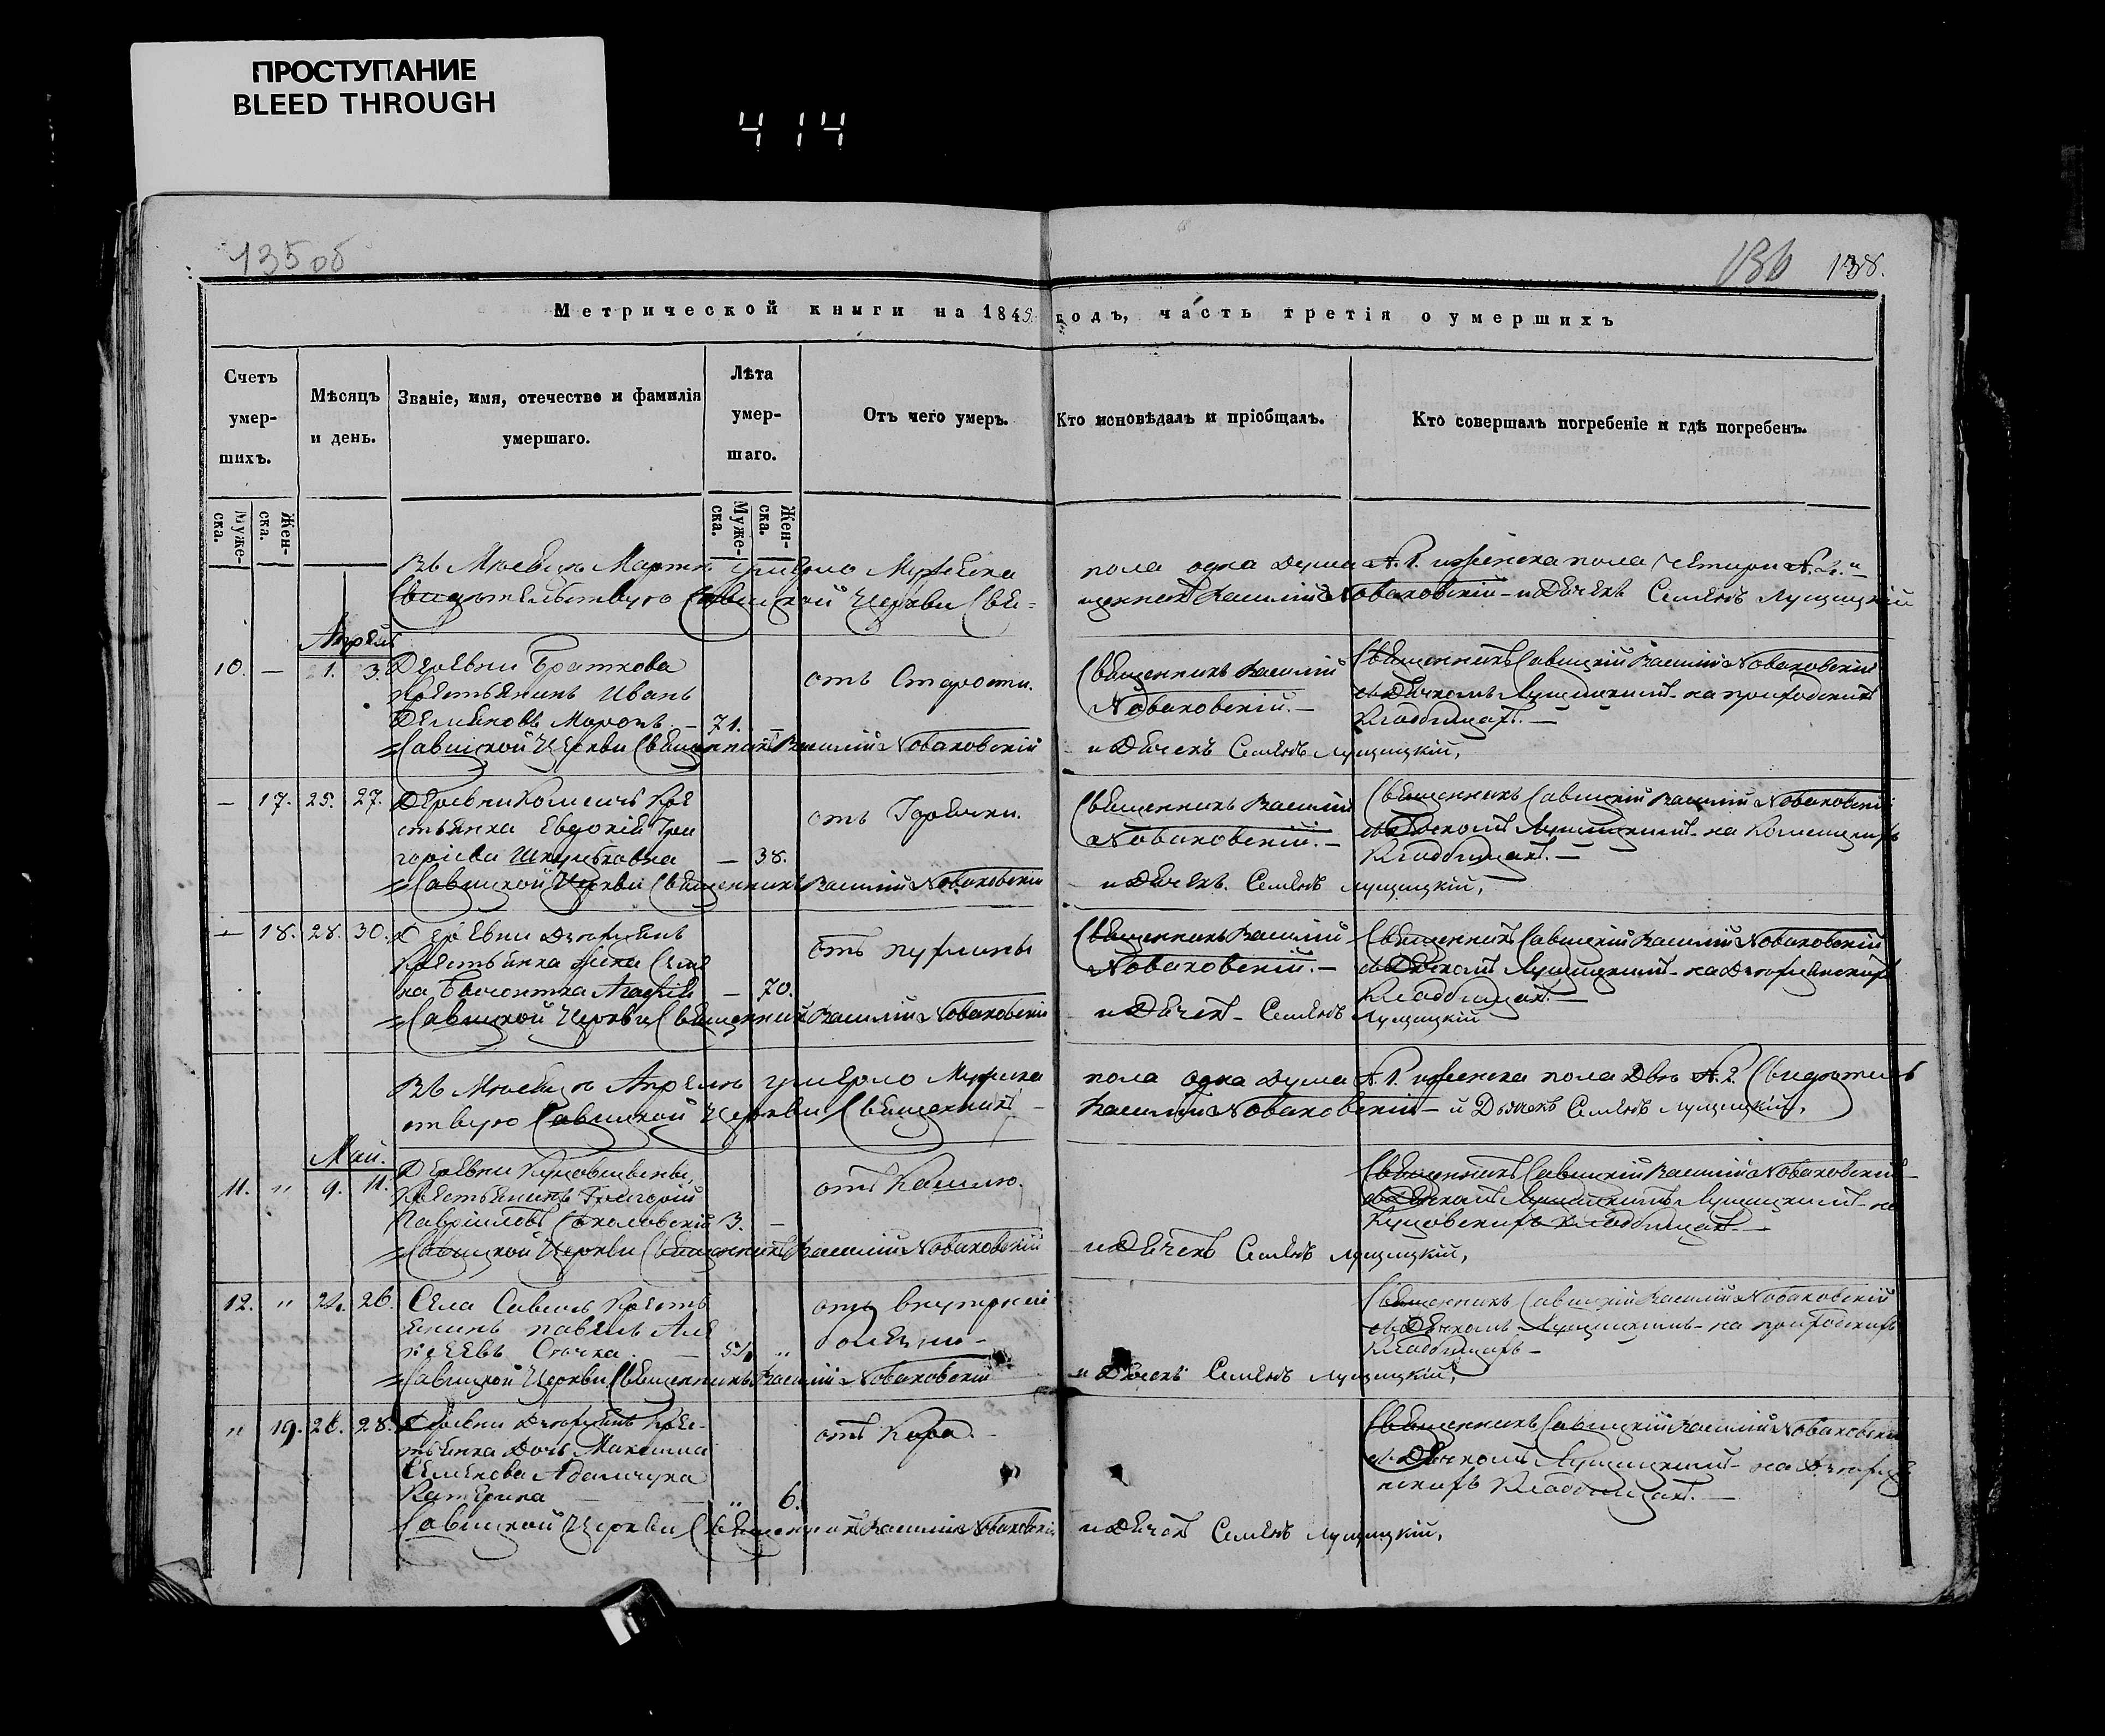 ПРОСТУПАНИЕ
BLEED THROUGH
414
135 об
136 138.
Метрической книги на 1845 годъ, часть третія о умершихъ
Счетъ умершихъ.
Мѣсяцъ и день.
Званіе, имя, отечество и фамилія умершаго.
Лѣта умершаго.
Отъ чего умеръ.
Кто исповѣдалъ и пріобщалъ.
Кто совершалъ погребеніе и гдѣ погребенъ.
Мужеска.
Женска.
Мужеска.
Женска.
Въ Мѣсяцѣ Мартѣ умерло Мужеска пола одна душа №. 1. и женска пола четыри
Свидѣтельствую Савицкой Церкви Священникъ Василій Новаковскій и Дьячекъ Семенъ Лущицкій
Апрель
10. — 1. 3. Деревни
Крестьянинъ Иванъ
— 71. —
отъ Старости.
Священникъ Василій
Новаковскій. —
Священникъ Савицкій Василій Новаковскій
съ Дьячкомъ Лущицкимъ на приходскихъ
Кладбищахъ. —
Савицкой Церкви Священникъ Василій Новаковскій и Дьячекъ Семенъ Лущицкій,
— 17. 25. 27. Деревни
Крестьянка Евдокія
— 38.
отъ Горячки.
Священникъ Василій
Новаковскій. —
Священникъ Савицкій Василій Новаковскій
съ Дьячкомъ Лущицкимъ на
Кладбищахъ. —
Савицкой Церкви Священникъ Василій Новаковскій и Дьячекъ Семенъ Лущицкій,
— 18. 28. 30. Деревни
Крестьянка
— 70.
отъ пухлины
Священникъ Василій
Новаковскій. —
Священникъ Савицкій Василій Новаковскій
съ Дьячкомъ Лущицкимъ на
Кладбищахъ. —
Савицкой Церкви Священникъ Василій Новаковскій и Дьячекъ Семенъ Лущицкій
Въ Мѣсяцѣ Апрелѣ умерло Мужеска пола одна душа №. 1. и женска пола двѣ №. 2. Свидѣтель
ствую Савицкой Церкви Священникъ Василій Новаковскій и Дьячекъ Семенъ Лущицкій,
Май.
11. " 9. 11. Деревни
Крестьянинъ Григорій
Гавріиловъ 3. —
отъ Кашлю.
Священникъ Савицкій Василій Новаковскій
съ Дьячкомъ Лущицкимъ на
Кладбищахъ —
Савицкой Церкви Священникъ Василій Новаковскій и Дьячекъ Семенъ Лущицкій,
12. " 24. 26. Села Савичъ Кресть
янинъ Павелъ Але
ксеевъ
отъ внутрней
болезни —
Священникъ Савицкій Василій Новаковскій
съ Дьячкомъ Лущицкимъ на приходскихъ
Кладбищахъ —
Савицкой Церкви Священникъ Василій Новаковскій и Дьячекъ Семенъ Лущицкій,
" 19. 26. 28. Деревни Крес
тьянка Дочь Максима
Семенова Адамчука
Катерина " 6.
отъ Кора. —
Священникъ Савицкій Василій Новаковскій
съ Дьячкомъ Лущицкимъ на
Кладбищахъ. —
Савицкой Церкви Священникъ Василій Новаковскій и Дьячекъ Семенъ Лущицкій,